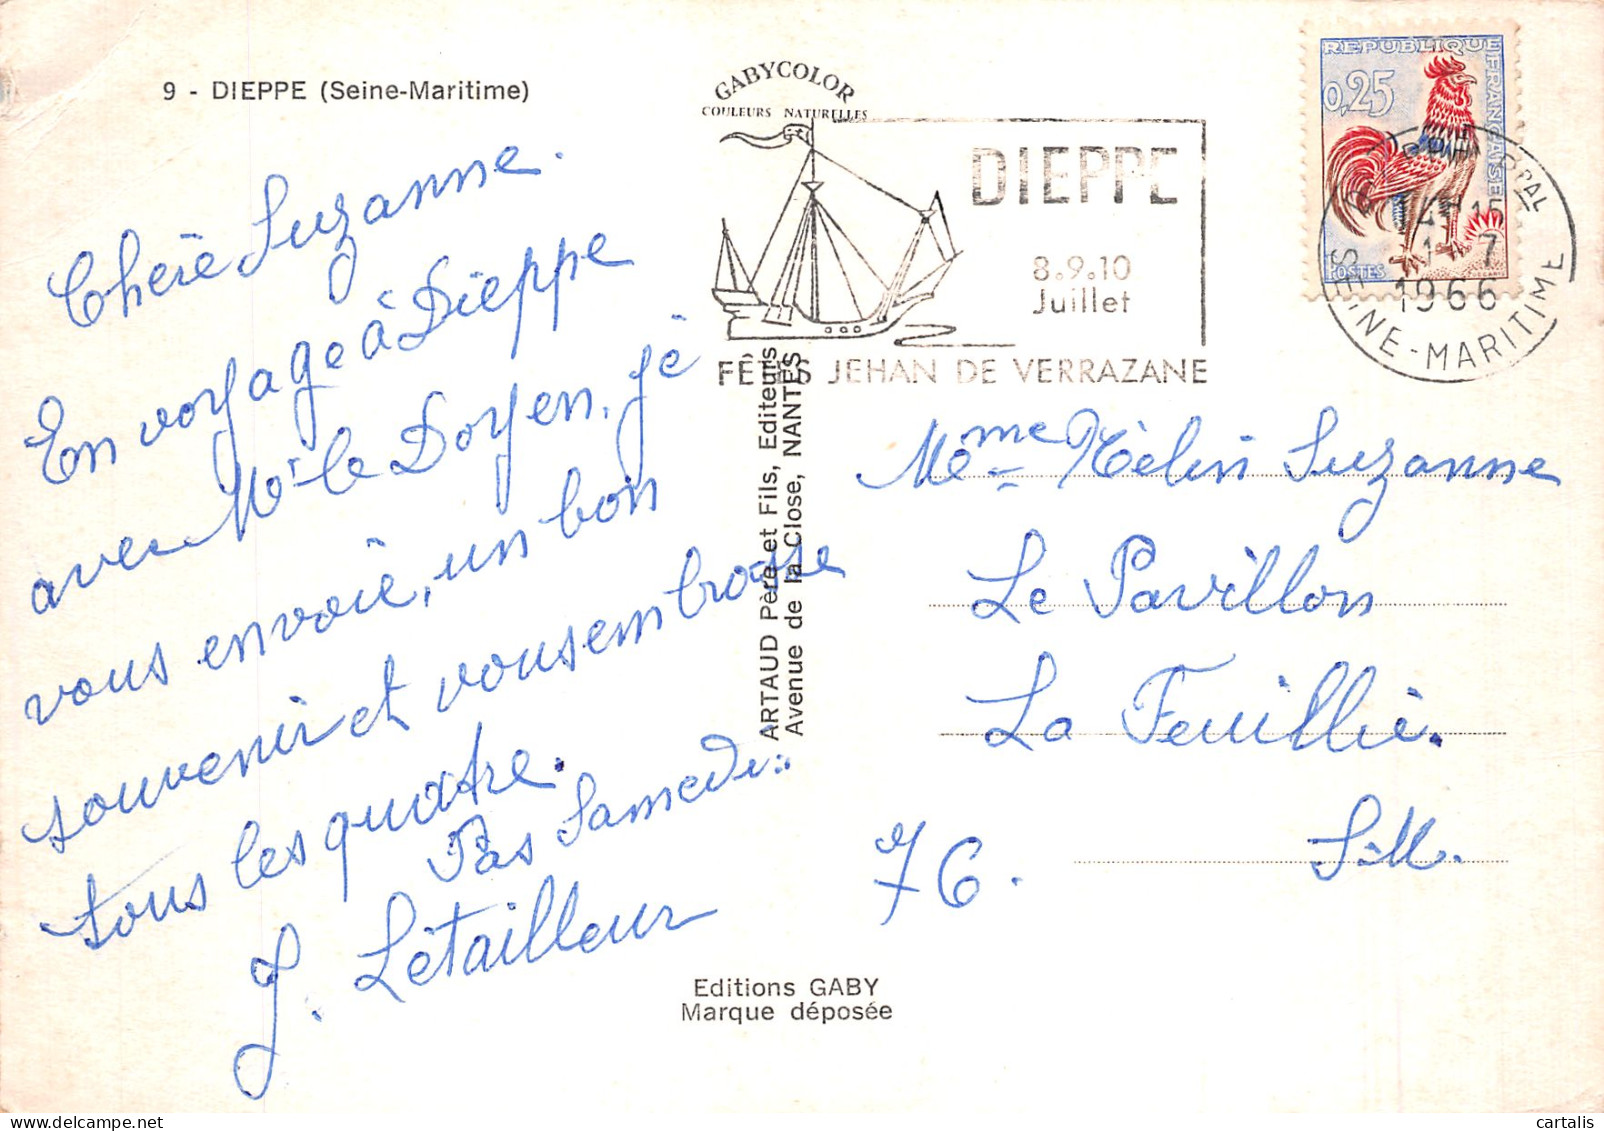 9 - DIEPPE (Seine-Maritime)
GABYCOLOR
COULEURS NATURELLES
DIEPPE
8.9.10
Juillet
FÊTES JEHAN DE VERRAZANE
REPUBLIQUE FRANÇAISE
0,25
POSTES
DIEPPE PPAL
15
7
1966
SEINE-MARITIME
Chère Suzanne.
En voyage à Dieppe
avec Mr le Doyen, je
vous envoie, un bon
souvenir et vous embrasse
tous les quatre.
Pas Samedi..
J. Létailleur
ARTAUD Père et Fils, Editeurs
Avenue de la Close, NANTES
Mme Hélin Suzanne
Le Pavillon
La Feuillie.
76.
S-M.
Editions GABY
Marque déposée
cartalis | delcampe.net